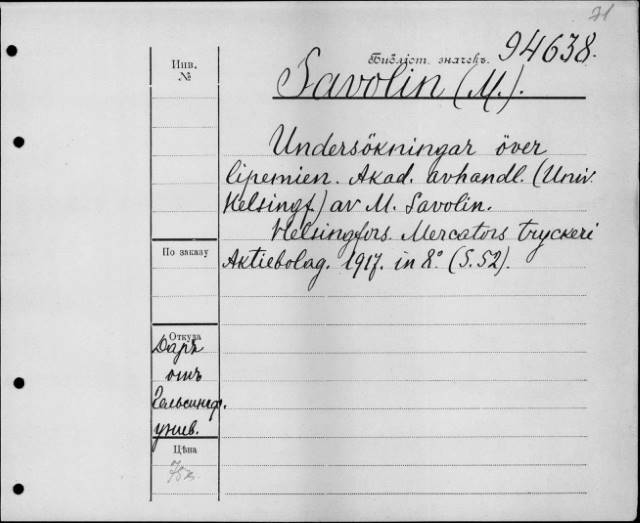 21
Инв.
№
Библіот. значекъ.
94638.
Savolin (M.).
Undersökningar över
lipemien. Akad. avhandl. (Univ.
Helsingf.) av M. Savolin.
Helsingfors. Mercators tryckeri
Aktiebolag. 1917. in 8° (S. 52).
По заказу
Откуда
Даръ
отъ
Гельсингф.
унив.
Цѣна